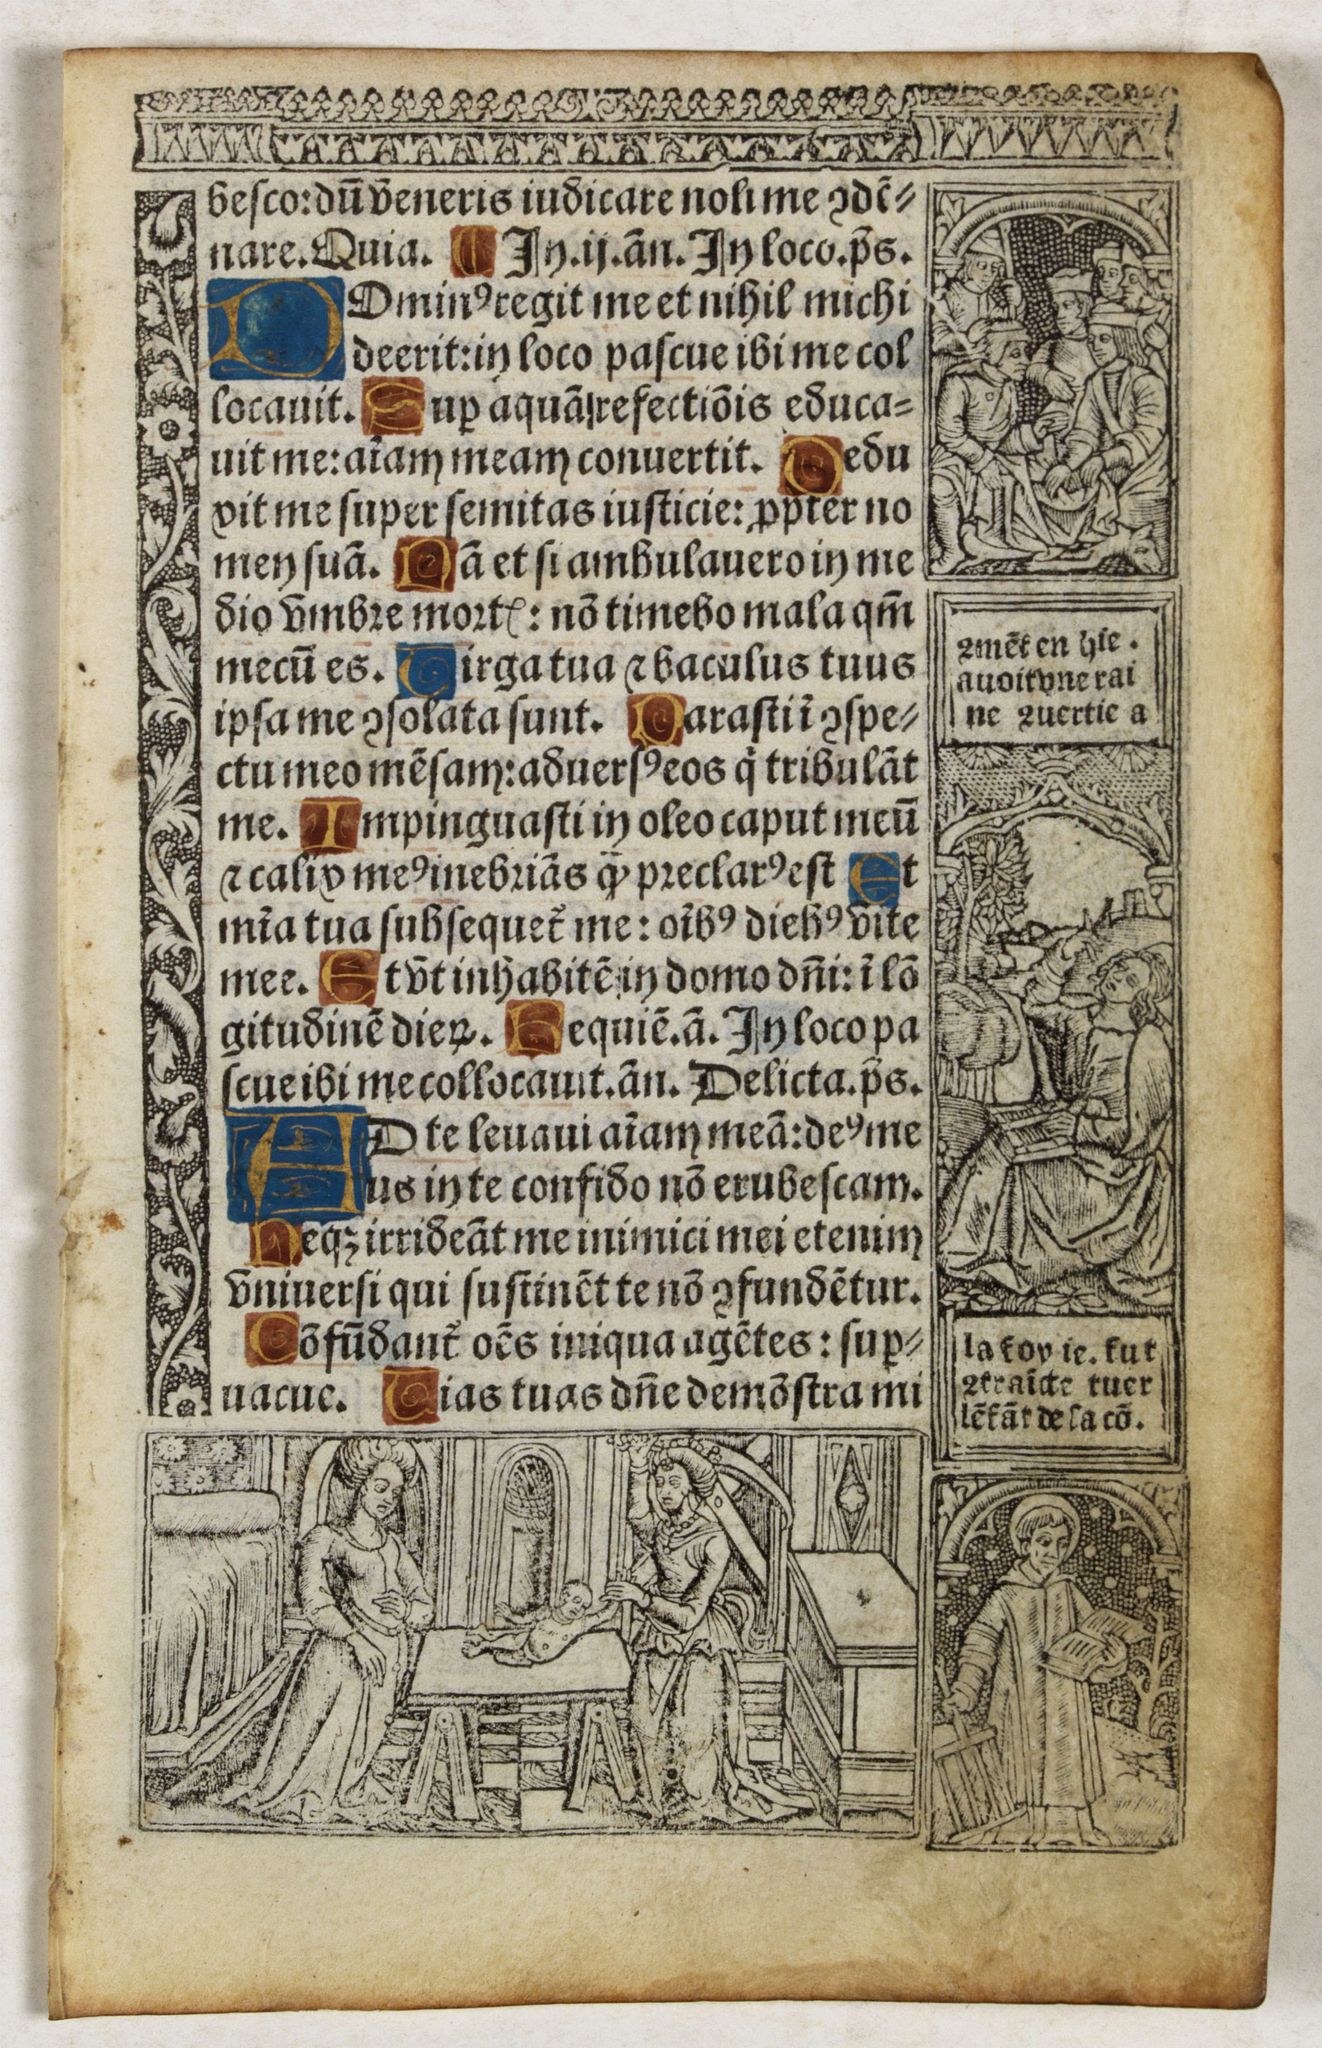 besco:dū v̄eneris iudicare noli me ꝯdē⸗
nare.Quia. ¶ In.ij.ān. In loco.p̄s.
DOminꝰ regit me et nihil michi
deerit:in loco pascue ibi me col
locauit. Sup̲ aquā refectiōis educa⸗
uit me:aīam meam conuertit. Dedu
vit me super semitas iusticie: ꝓpter no
men suū. Nā et si ambulauero in me
dio v̄mbre mortꝭ: nō timebo mala qm̄
mecū es. Uirga tua ⁊ baculus tuus
ipsa me ꝯsolata sunt. Parasti ī ꝯspe⸗
ctu meo mēsam:aduersꝰ eos q̄ tribulāt
me. Impinguasti in oleo caput meū
⁊ calix meꝰ inebriās q̄ȝ preclarꝰ est Et
mīa tua subsequet̄ me: oībꝰ diebꝰ v̄ite
mee. Et v̄t inhabitē in domo dn̄i: ī lō
gitudinē dieꝝ. Requiē.ā. In loco pa
scue ibi me collocauit.ān. Delicta.p̄s.
AD te leuaui aīam meā:deꝰ me
us in te confido nō erubescam.
Neqꝫ irrideāt me inimici mei etenim
v̄niuersi qui sustinēt te nō ꝯfundētur.
Cōfūdant̄ oēs iniqua agētes: sup̲⸗
uacue. Uias tuas dn̄e demōstra mi
⁊mēt en hie.
auoit vne rai
ne ⁊uertie a
la foy ie. fut
⁊traīcte tuer
lēfāt de sa cō.